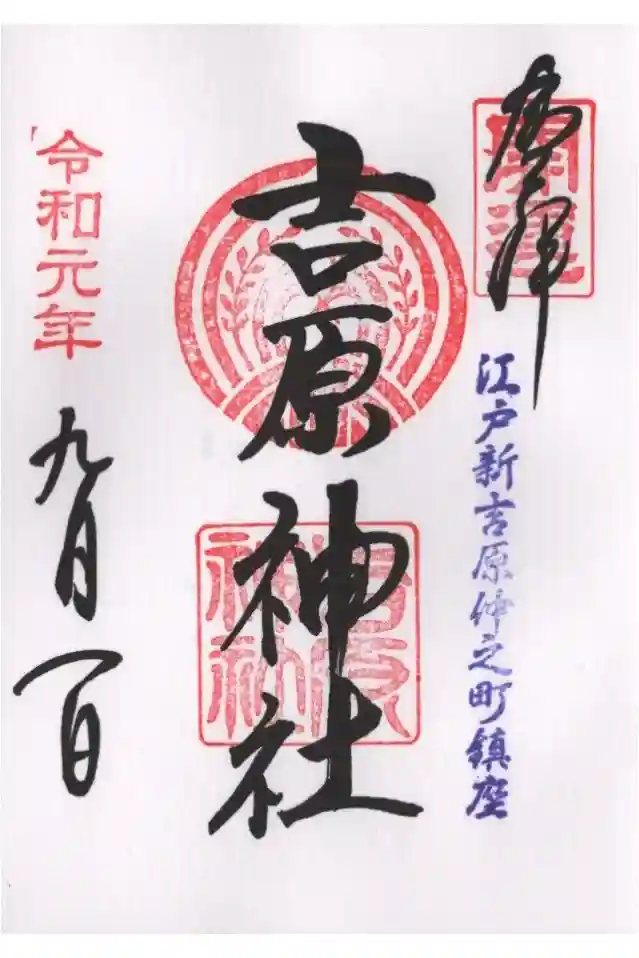 奉拝
開運
江戸新吉原仲之町鎮座
吉原神社
吉原神社
令和元年
九月一日